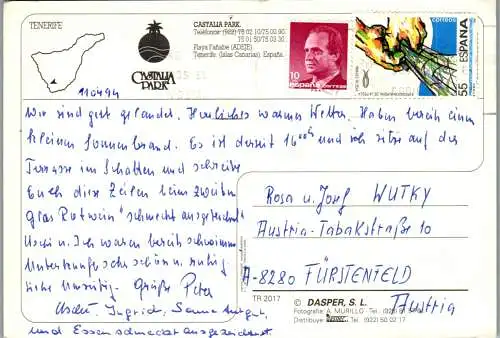 TENERIFE
CASTALIA PARK
CASTALIA PARK.
Teléfonos: (922) 75 02 10/75 02 90
75 01 50/75 03 30
Playa Fañabe (ADEJE)
Tenerife. (Islas Canarias). España.
10
ESPAÑA
CORREOS
correos
55 ESPAÑA
110494
Wir sind gut gelandet. Herrliches warmes Wetter. Haben bereits einen
kleinen Sonnenbrand. Es ist derzeit 16 00h und ich sitze auf der
Terrasse im Schatten und schreibe
Euch diese Zeilen beim zweiten
Glas Rotwein "schmeckt ausgezeichnet"
Uschi u. Ich waren bereits schwimmen
Unterkunft sehr schön u. ruhig
Grüße Peter
Uschi, Ingrid,
und Essen schmeckt ausgezeichnet.
Rosa u. Josef WUTKY
Austria-Tabakstraße 10
A-8280 FÜRSTENFELD
Austria
TR 2017
© DASPER, S. L.
Fotografía: A. MURILLO - Tel. (922)
Distribuye: Tel. (922) 50 02 17